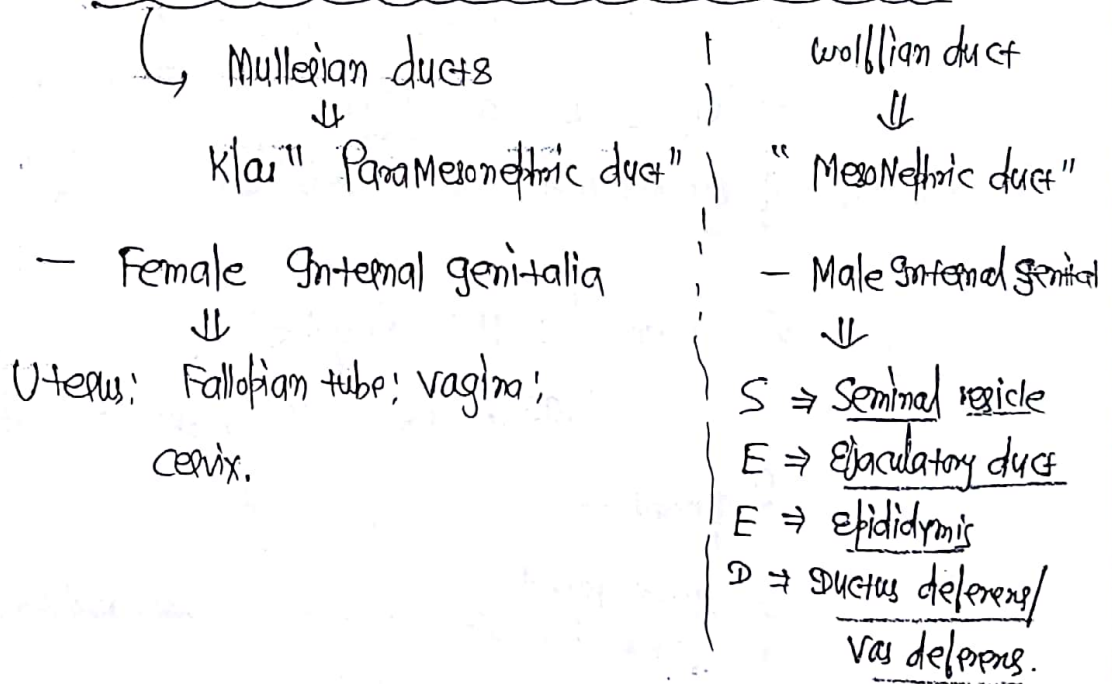 Mullerian ducts
K/as "ParaMesonephric duct"
- Female Internal genitalia
Uterus; Fallopian tube; vagina;
cervix.
wolffian duct
"MesoNephric duct"
- Male Internal genital
S ⇒ Seminal vesicle
E ⇒ Ejaculatory duct
E ⇒ Epididymis
D ⇒ Ductus deferens/
Vas deferens.